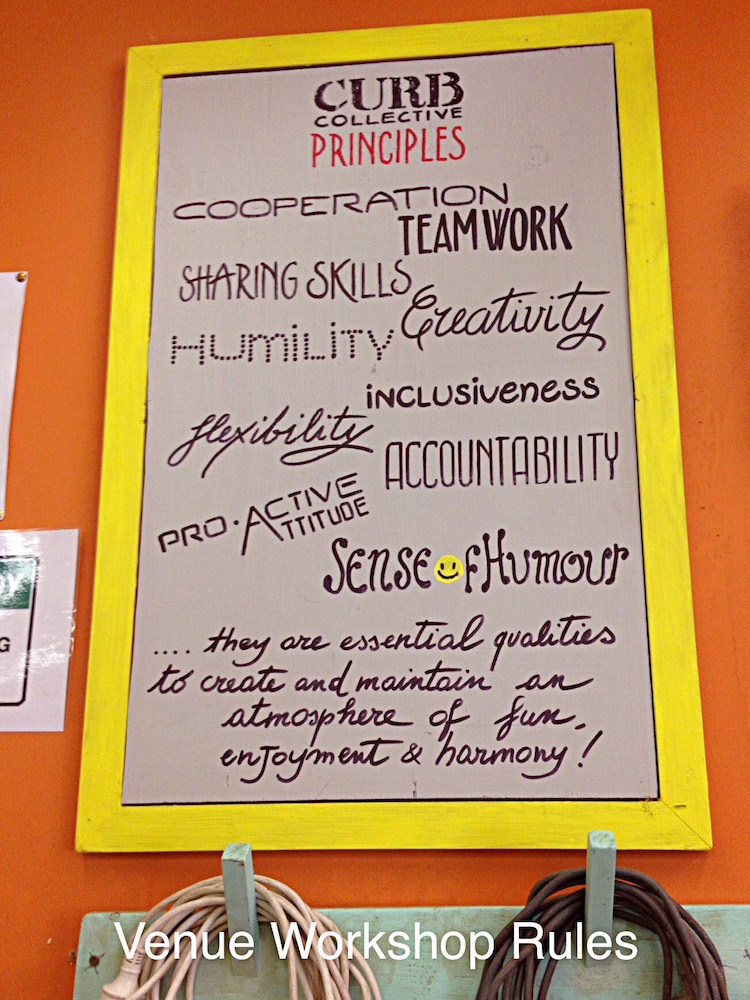 CURB
COLLECTIVE
PRINCIPLES
COOPERATION
TEAMWORK
SHARING SKILLS
Creativity
HUMILITY
INCLUSIVENESS
flexibility
ACCOUNTABILITY
PRO.ACTIVE
ATTITUDE
SENSE OF HUMOUR
.... they are essential qualities
to create and maintain an
atmosphere of fun,
enjoyment & harmony!
G
Venue Workshop Rules